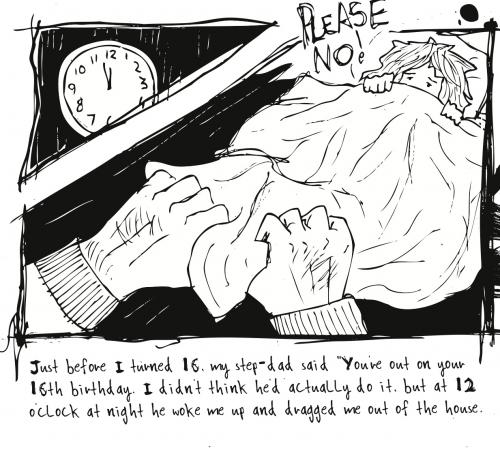 PLEASE
NO!
10 11 12 1 2 3 9 8 7
Just before I turned 16. my step-dad said "You're out on your
16th birthday. I didn't think he'd actually do it. but at 12
o'clock at night he woke me up and dragged me out of the house.